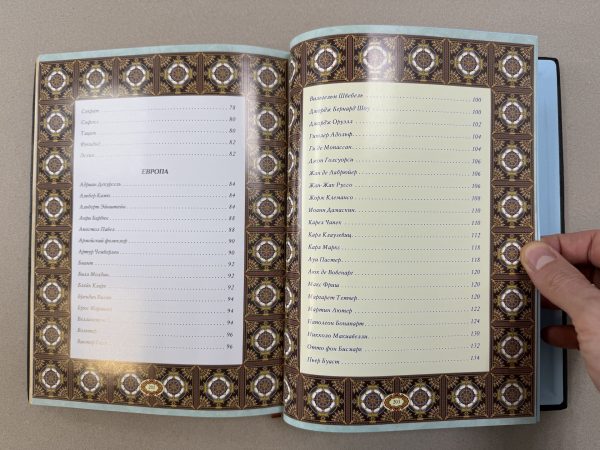 Сократ 78
80
Тацит 80
82
82
ЕВРОПА
Адриан Декурсель 84
Альбер Камю 84
Альберт Эйнштейн 86
Анри Барбюс 88
88
Армейский фольклор 90
Артур Чемберлен 90
Биант 92
92
94
94
94
94
Вольтер 96
96
Вильгельм Швебель 100
Джордж Бернард Шоу 100
Джордж Оруэлл 102
Гитлер Адольф 104
Ги де Мопассан 104
Джон Голсуорси 106
Жан де Лабрюйер 106
Жан-Жак Руссо 106
Жорж Клемансо 108
Иоанн Дамаскин 110
Карел Чапек 110
Карл Клаузевиц 112
Карл Маркс 118
Луи Пастер 118
Люк де Вовенарг 120
Макс Фриш 120
Маргарет Тэтчер 120
Мартин Лютер 122
Наполеон Бонапарт 124
Никколо Макиавелли 130
Отто фон Бисмарк 132
Пьер Буаст 134